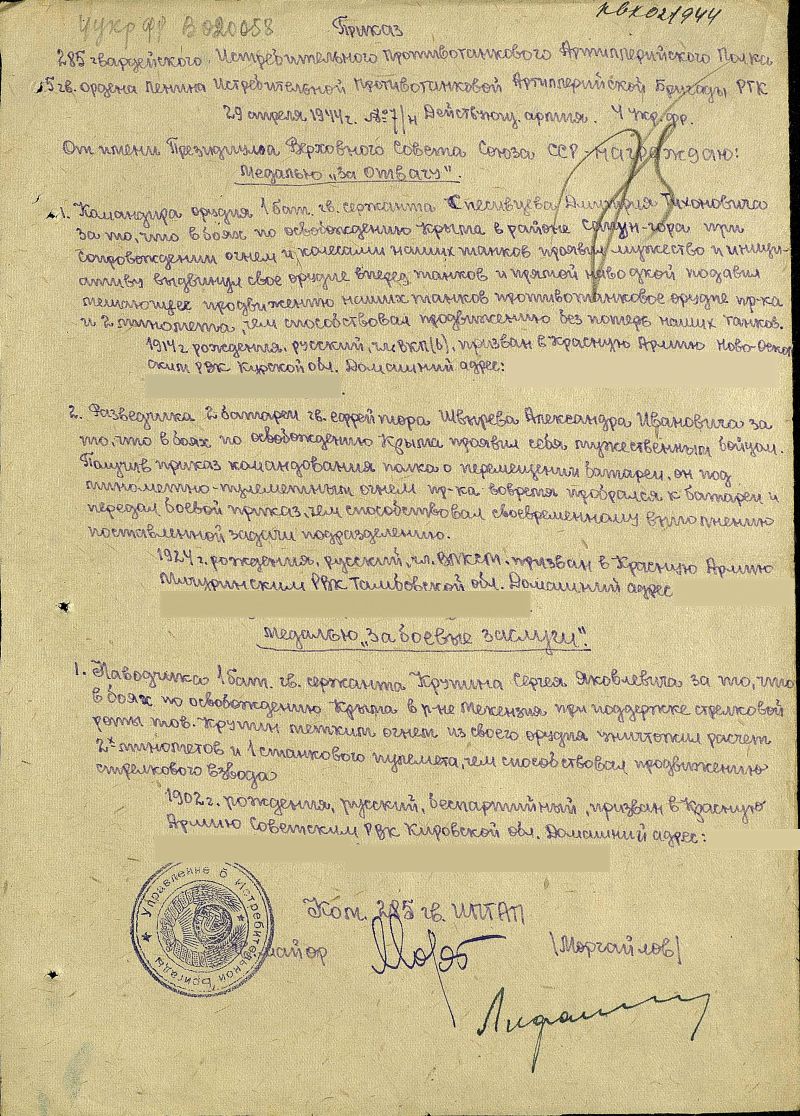 4 укр фр В 020058
Приказ
285 гвардейского Истребительного противотанкового Артиллерийского Полка
5 гв. ордена Ленина Истребительной Противотанковой Артиллерийской Бригады РГК
29 апреля 1944 г. № 7/н Действующ. армия. 4 Укр. фр.
От имени Президиума Верховного Совета Союза ССР - награждаю:
Медалью „За отвагу".
1. Командира орудия 1 бат. гв. сержанта Спесивцева Дмитрия Тихоновича
за то, что в боях по освобождению Крыма в районе Сапун-гора при
сопровождении огнем и колесами наших танков проявил мужество и иници-
ативу выдвинул свое орудие вперед танков и прямой наводкой подавил
мешающее продвижению наших танков противотанковое орудие пр-ка
и 2 миномета, чем способствовал продвижению без потерь наших танков.
1914 г. рождения, русский, чл. ВКП(б), призван в Красную Армию Ново-Оскол
ским РВК Курской обл. Домашний адрес:
2. Разведчика 2 батареи гв. ефрейтора Швырева Александра Ивановича за
то, что в боях по освобождению Крыма проявил себя мужественным бойцом.
Получив приказ командования полка о перемещении батареи, он под
минометно-пулеметным огнем пр-ка вовремя пробрался к батареи и
передал боевой приказ, чем способствовал своевременному выполнению
поставленной задачи подразделению.
1924 г. рождения, русский, чл. ВЛКСМ, призван в Красную Армию
Мичуринским РВК Тамбовской обл. Домашний адрес
Медалью „За боевые заслуги".
1. Наводчика 1 бат. гв. сержанта Крутина Сергея Яковлевича за то, что
в боях по освобождению Крыма в р-не Мекензия при поддержке стрелковой
роты тов. Крутин метким огнем из своего орудия уничтожил расчет
2х минометов и 1 станкового пулемета, чем способствовал продвижению
стрелкового взвода
1902 г. рождения, русский, беспартийный, призван в Красную
Армию Советским РВК Кировской обл. Домашний адрес:
Управление 6 Истребительной Бригады
Ком. 285 гв. ИПТАП
майор (Моргайлов)